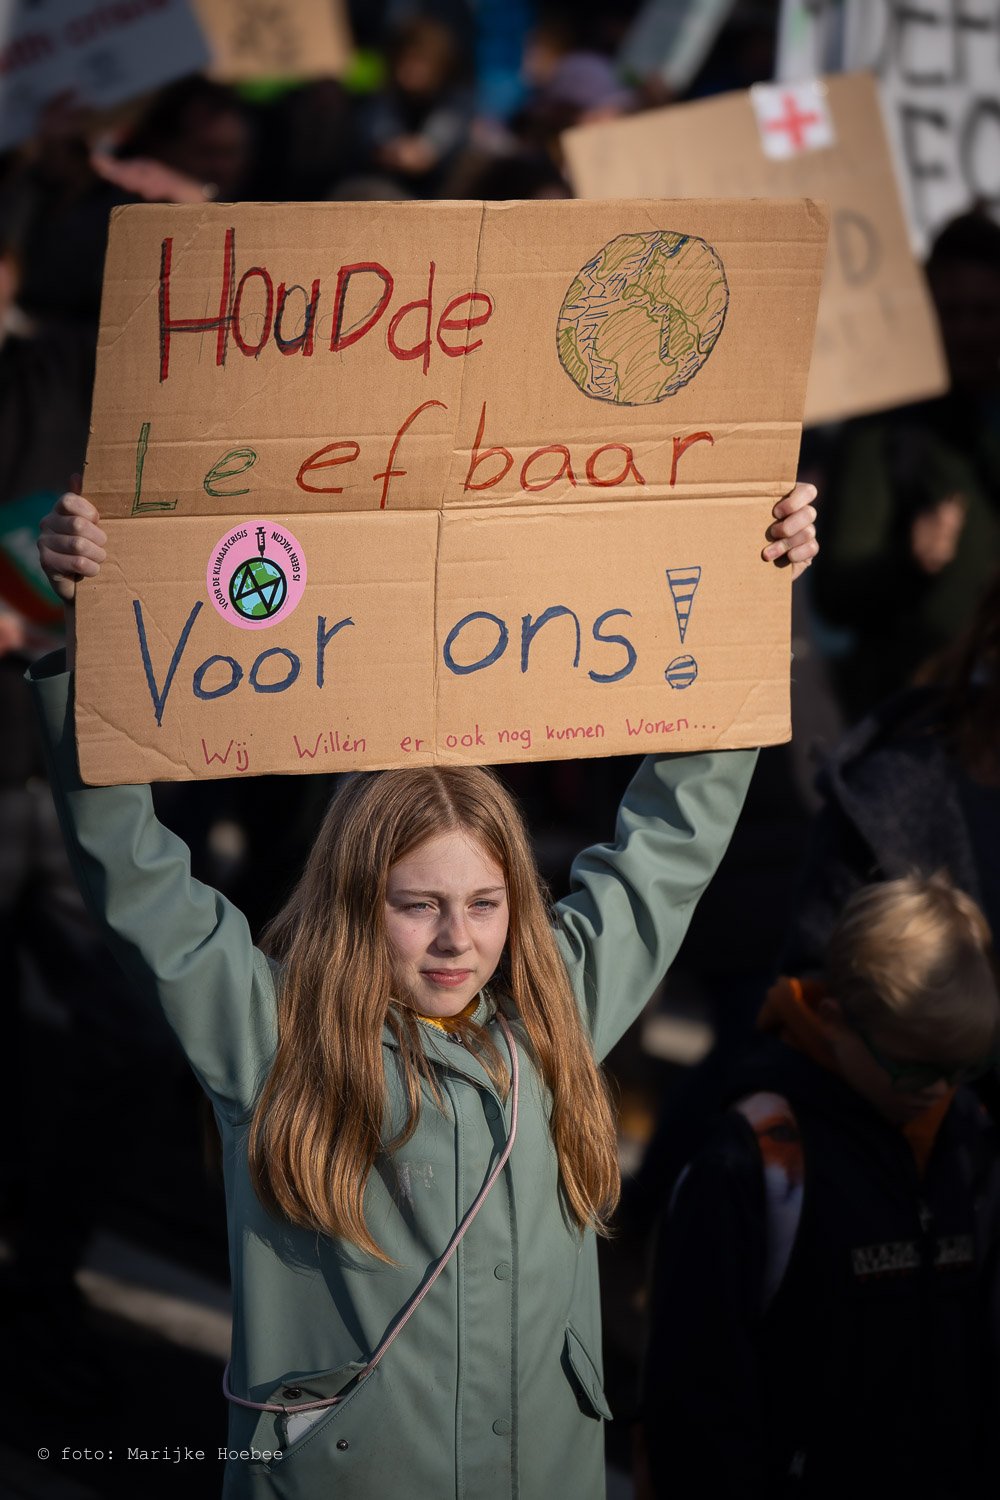 th crisis
HouDde
Leefbaar
VOOR DE KLIMAATCRISIS
IS GEEN VACCIN
Voor ons!
Wij Willen er ook nog kunnen Wonen...
© foto: Marijke Hoebee